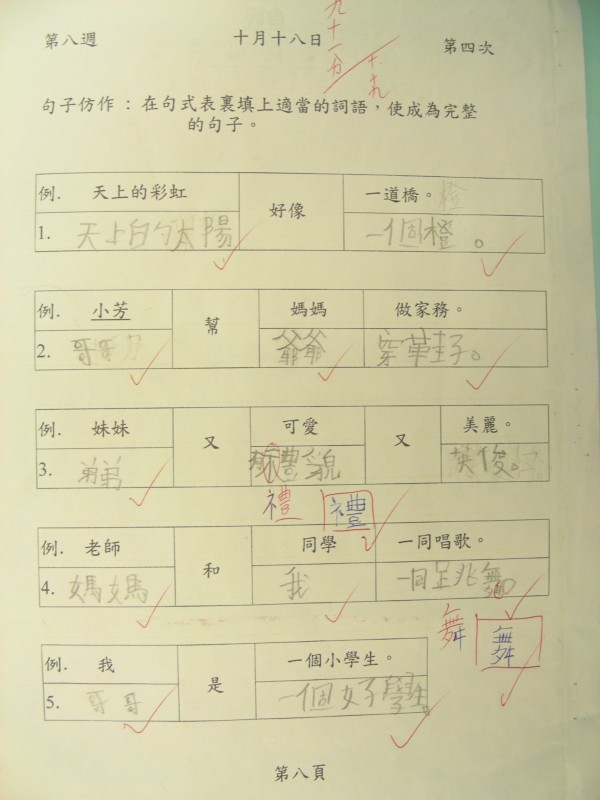 第八週 十月十八日 第四次
九十一分
十.十九
句子仿作:在句式表裏填上適當的詞語,使成為完整
的句子。
例. 天上的彩虹 好像 一道橋。
1. 天上的太陽 一個橙。
例. 小芳 幫 媽媽 做家務。
2. 哥哥 爺爺 穿鞋子。
例. 妹妹 又 可愛 又 美麗。
3. 弟弟 有禮貌 英俊。
禮 禮
例. 老師 和 同學 一同唱歌。
4. 媽媽 我 一同跳舞。
舞 舞
例. 我 是 一個小學生。
5. 哥哥 一個好學生。
第八頁